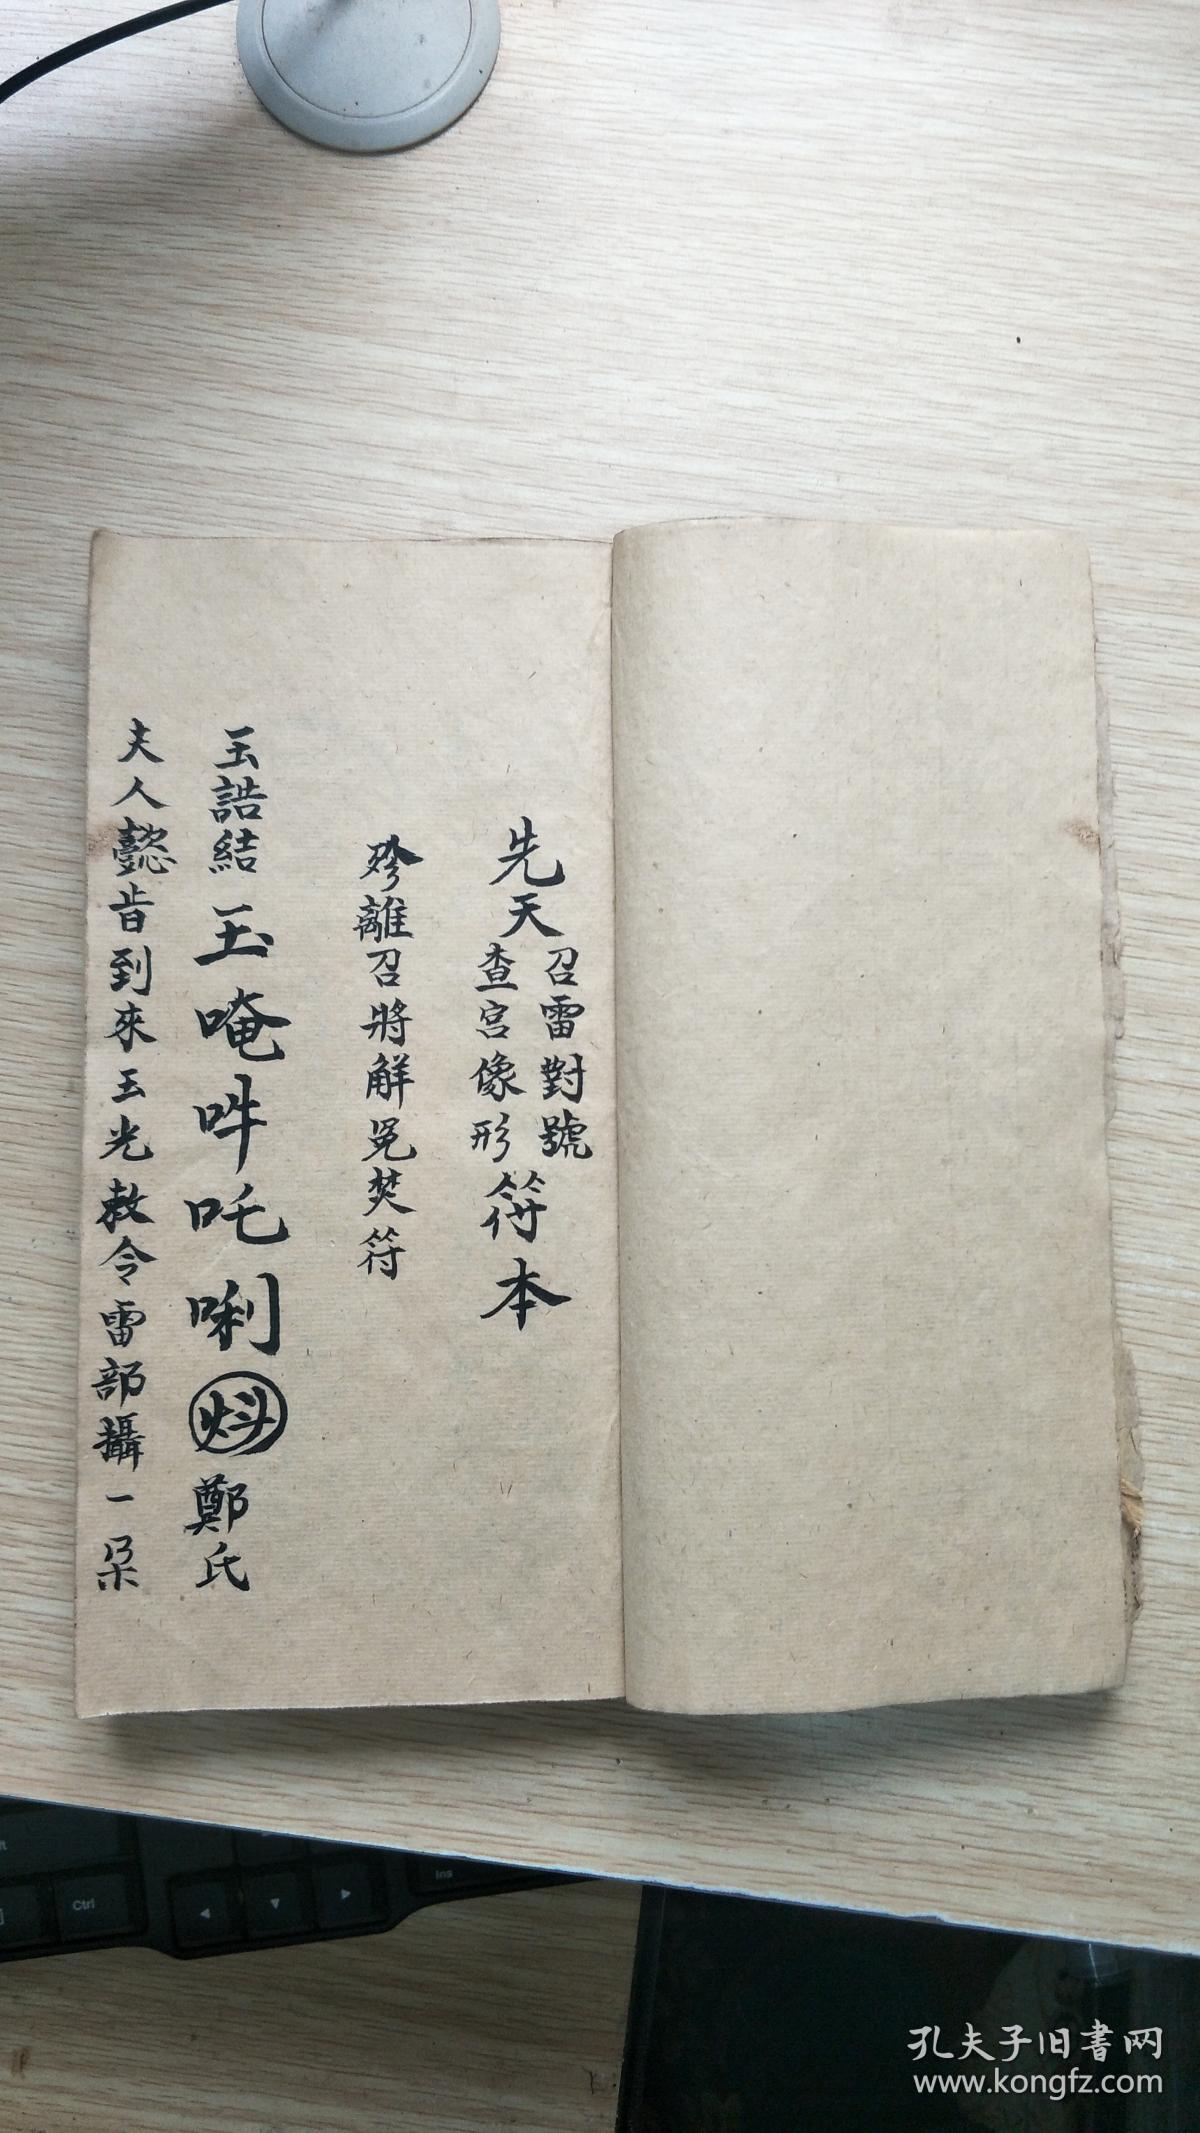 先天召雷對號查宮像形符本
殄離召將解冤焚符
玉誥結玉唵吽吒唎㷁鄭氏
夫人懿旨到來玉光敕令雷部攝一朵
Ctrl
Ins
孔夫子旧書网
www.kongfz.com